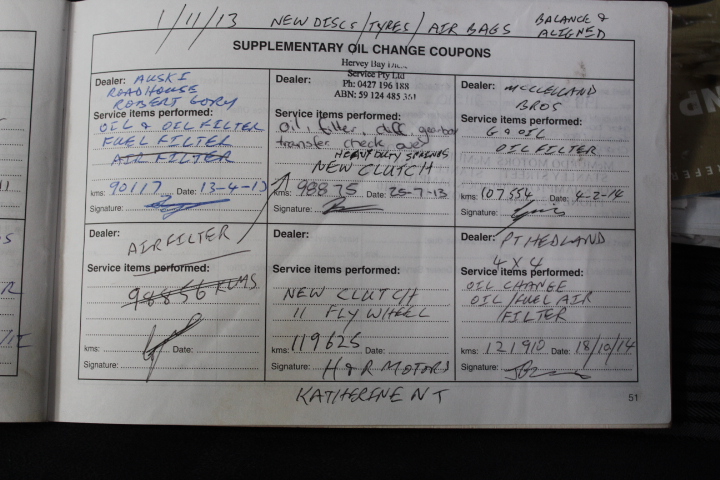 1/11/13 NEW DISCS/TYRES/AIR BAGS BALANCE & ALIGNED
SUPPLEMENTARY OIL CHANGE COUPONS
Dealer: AUSKI
ROADHOUSE
ROBERT GORY
Service items performed:
OIL & OIL FILTER
FUEL FILTER
AIR FILTER
kms: 90117 Date: 13-4-13
Signature:
Hervey Bay
Service Pty Ltd
Dealer:
Ph: 0427 196 188
ABN: 59 124 485 351
Service items performed:
oil, filter, diff, gearbox
transfer check over
HEAVY DUTY SPRINGS
NEW CLUTCH
kms: 98875 Date: 25-7-13
Signature:
Dealer: McCLELLAND
BROS
Service items performed:
G & OIL
OIL FILTER
kms: 107554 Date: 4-2-14
Signature:
Dealer:
AIRFILTER
Service items performed:
98856 KLMS
kms: Date:
Signature:
Dealer:
Service items performed:
NEW CLUTCH
11 FLY WHEEL
kms: 119625 Date:
Signature: H & R MOTORS
KATHERINE NT
Dealer: PT HEDLAND
4 X 4
Service items performed:
OIL CHANGE
OIL/FUEL AIR
FILTER
kms: 121910 Date: 18/10/14
Signature:
51